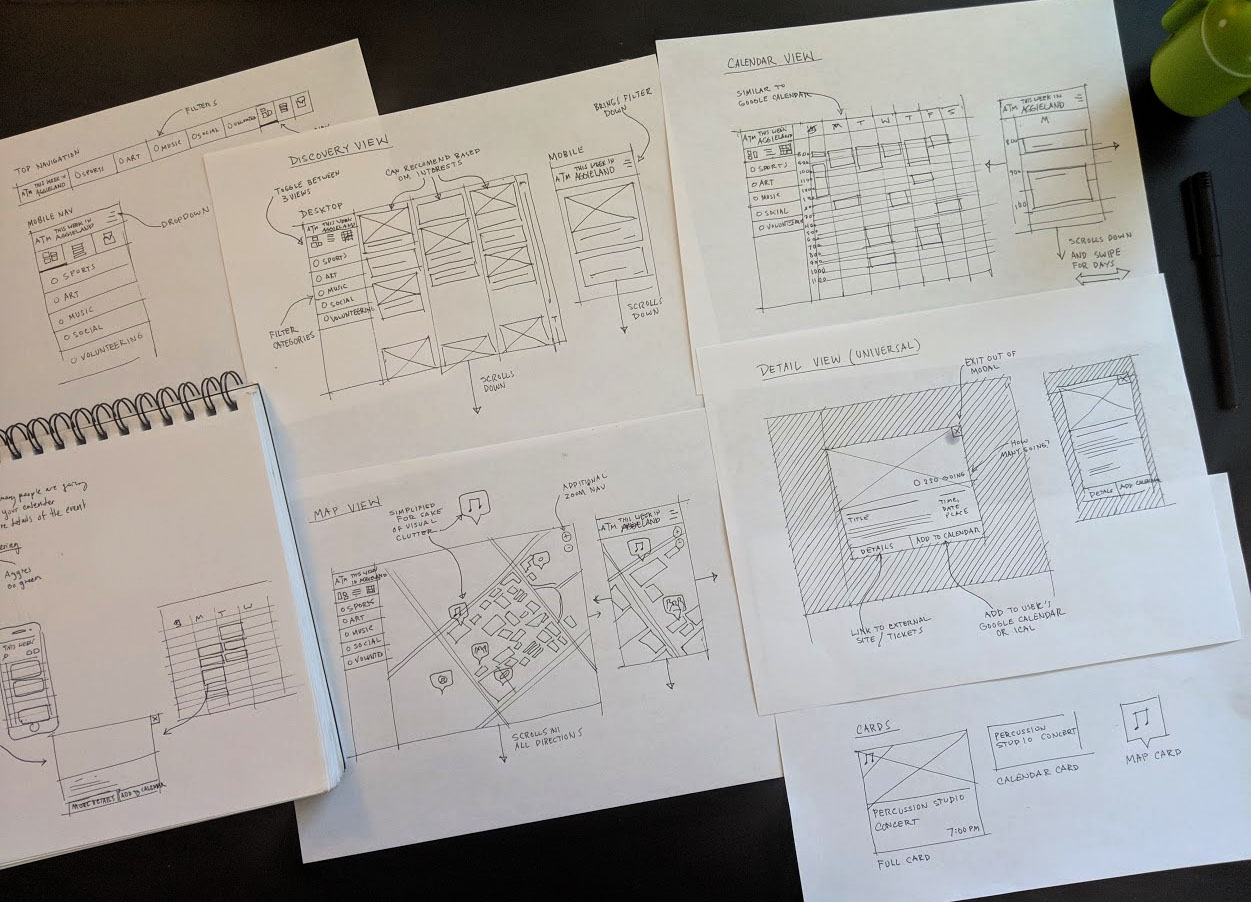 FILTERS
TOP NAVIGATION
ATM THIS WEEK IN
AGGIELAND
O SPORTS
O ART
O MUSIC
O SOCIAL
MOBILE NAV
ATM THIS WEEK IN
AGGIELAND
DROPDOWN
O SPORTS
O ART
O MUSIC
O SOCIAL
O VOLUNTEERING
DISCOVERY VIEW
TOGGLE BETWEEN
3 VIEWS
CAN RECOMEND BASED
ON INTERESTS
DESKTOP
ATM THIS WEEK IN
AGGIELAND
O SPORTS
O ART
O MUSIC
O SOCIAL
O VOLUNTEERING
FILTER
CATEGORIES
SCROLLS
DOWN
BRINGS FILTER
DOWN
MOBILE
ATM THIS WEEK IN
AGGIELAND
SCROLLS
DOWN
CALENDAR VIEW
SIMILAR TO
GOOGLE CALENDAR
ATM THIS WEEK IN
AGGIELAND
M T W T F S
O SPORTS
O ART
O MUSIC
O SOCIAL
ATM THIS WEEK IN
AGGIELAND
M
800
900
100
SCROLLS DOWN
AND SWIPE
FOR DAYS
many people are going
your calender
details of the event
Aggies
go green
THIS WEEK
M T W
MORE DETAILS
ADD TO CALENDAR
MAP VIEW
SIMPLIFIED
FOR SAKE
OF VISUAL
CLUTTER
ADDITIONAL
ZOOM NAV
ATM THIS WEEK
IN AGGIELAND
O SPORTS
O ART
O MUSIC
O SOCIAL
O VOLUNTE
SCROLLS IN
ALL DIRECTIONS
ATM THIS WEEK IN
AGGIELAND
DETAIL VIEW (UNIVERSAL)
EXIT OUT OF
MODAL
HOW
MANY GOING?
O 230 GOING
TITLE
TIME,
DATE,
PLACE
DETAILS
ADD TO CALENDAR
LINK TO EXTERNAL
SITE / TICKETS
ADD TO USER'S
GOOGLE CALENDAR
OR ICAL
DETAILS
ADD CALENDAR
CARDS
PERCUSSION STUDIO
CONCERT
7:00 PM
FULL CARD
PERCUSSION
STUDIO CONCERT
CALENDAR CARD
MAP CARD